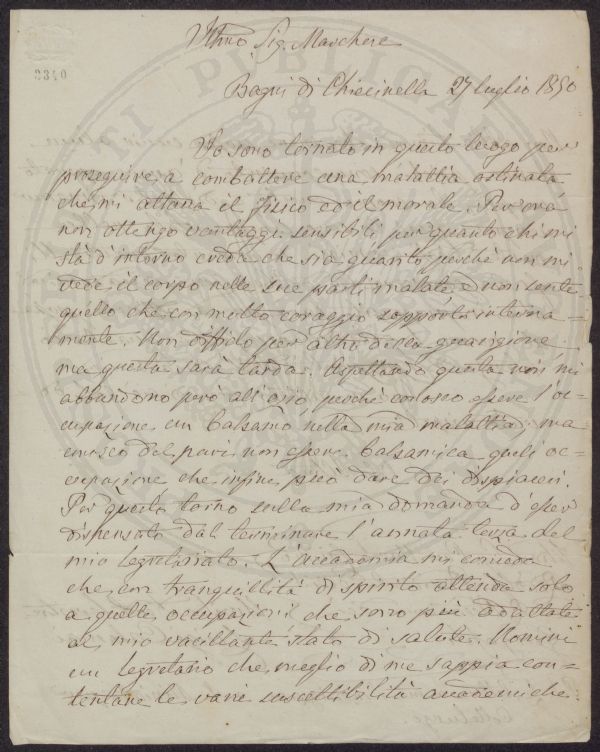 Illmo Sig. Marchese
2340
Bagni di Chiecinella 27 luglio 1850
Io sono tornato in questo luogo per
proseguire a combattere una malattia ostinata
che mi attacca il fisico ed il morale. Per ora
non ottengo vantaggi sensibili per quanto chi mi
stà d'intorno creda che sia guarito perchè non mi
vede il corpo nelle sue parti malate, e non sente
quello che con molto coraggio sopporto interna=
mente. Non diffido per altro della guarigione
ma questa sarà tarda. Aspettando questa non mi
abbandono però all'ozio perchè conosco essere l'oc=
cupazione un balsamo nella mia malattia; ma
conosco del pari non essere balsamica quell'oc=
cupazione che infine può dare dei dispiaceri.
Per questo torno sulla mia domanda d'esser
dispensato dal terminare l'annata terza del
mio Segretariato. L'Accademia mi conceda
che con tranquillità di spirito attenda solo
a quelle occupazioni che sono più adattate
al mio vacillante stato di salute. Nomini
un Segretario che meglio di me sappia con=
tentare le varie suscettibilità accademiche.